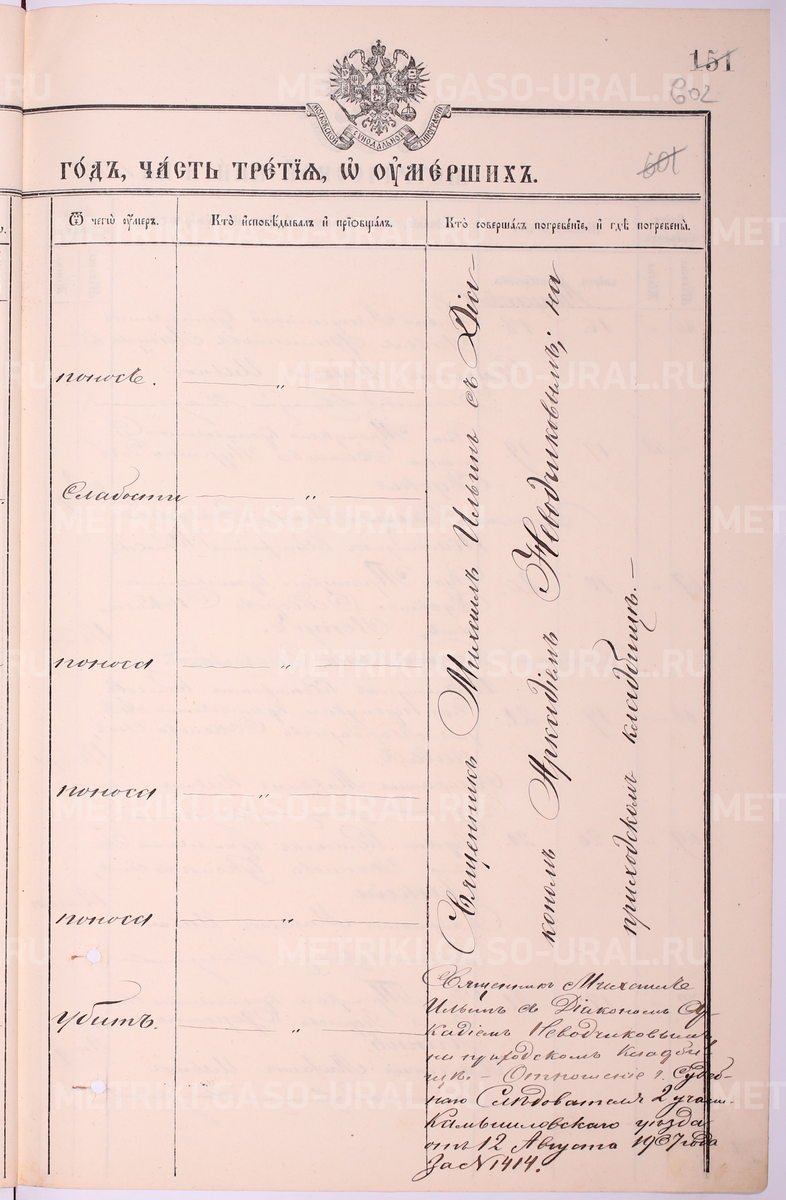 151
602
601
МОСКОВСКОЙ СѴНОДАЛЬНОЙ ТИПОГРАФІИ
ГО́ДЪ, ЧА́СТЬ ТРЕ́ТІѦ, Ѡ҆ ОУ҆МЕ́РШИХЪ.
Ѿ чегѡ̀ оу҆́меръ.
Кто̀ и҆сповѣ́дывалъ и҆ прїѡбща́лъ.
Кто̀ соверша́лъ погребе́нїе, и҆ гдѣ̀ погребены̀.
поносъ.
„
Слабости
„
поноса
„
поноса
„
поноса
„
Священникъ Михаилъ Ильинъ съ Діа-
кономъ Аркадіемъ Неводчиковымъ; на
приходскомъ кладбищѣ. —
убитъ.
„
Священникъ Михаилъ
Ильинъ съ Діакономъ Ар-
кадіемъ Неводчиковымъ
на приходскомъ кладби-
щѣ. — Отношеніе г. Судеб-
наго Слѣдователя 2 участ.
Камышловскаго уѣзда
отъ 12 Августа 1907 года
За № 1414.
METRIKI.GASO-URAL.RU